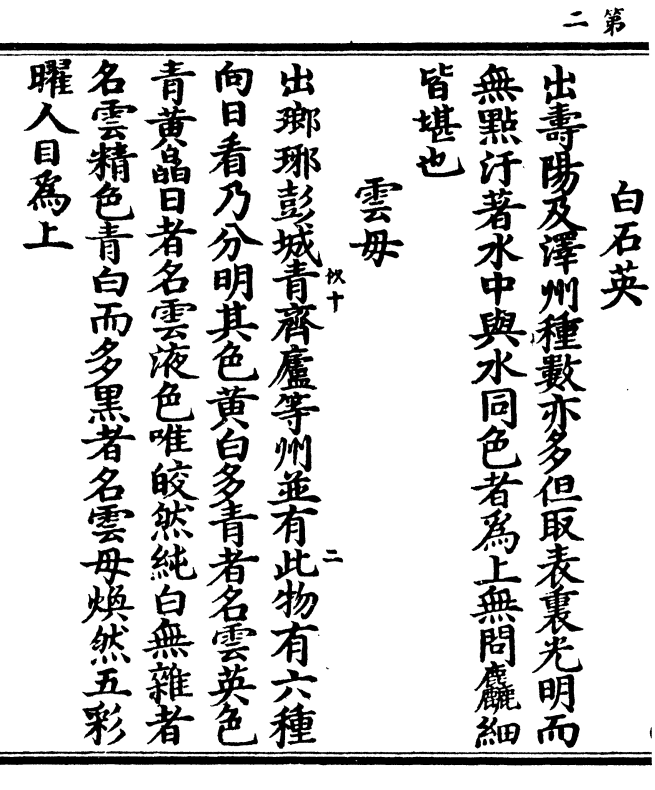 第二
白石英
出壽陽及澤州種數亦多但取表裏光明而
無點汙著水中與水同色者為上無問麤細
皆堪也
雲母
出瑯琊彭城青齊廬等州並有此物有六種
向日看乃分明其色黃白多青者名雲英色
青黃皛日者名雲液色唯皎然純白無雜者
名雲精色青白而多黑者名雲母煥然五彩
曜人目為上
十
二